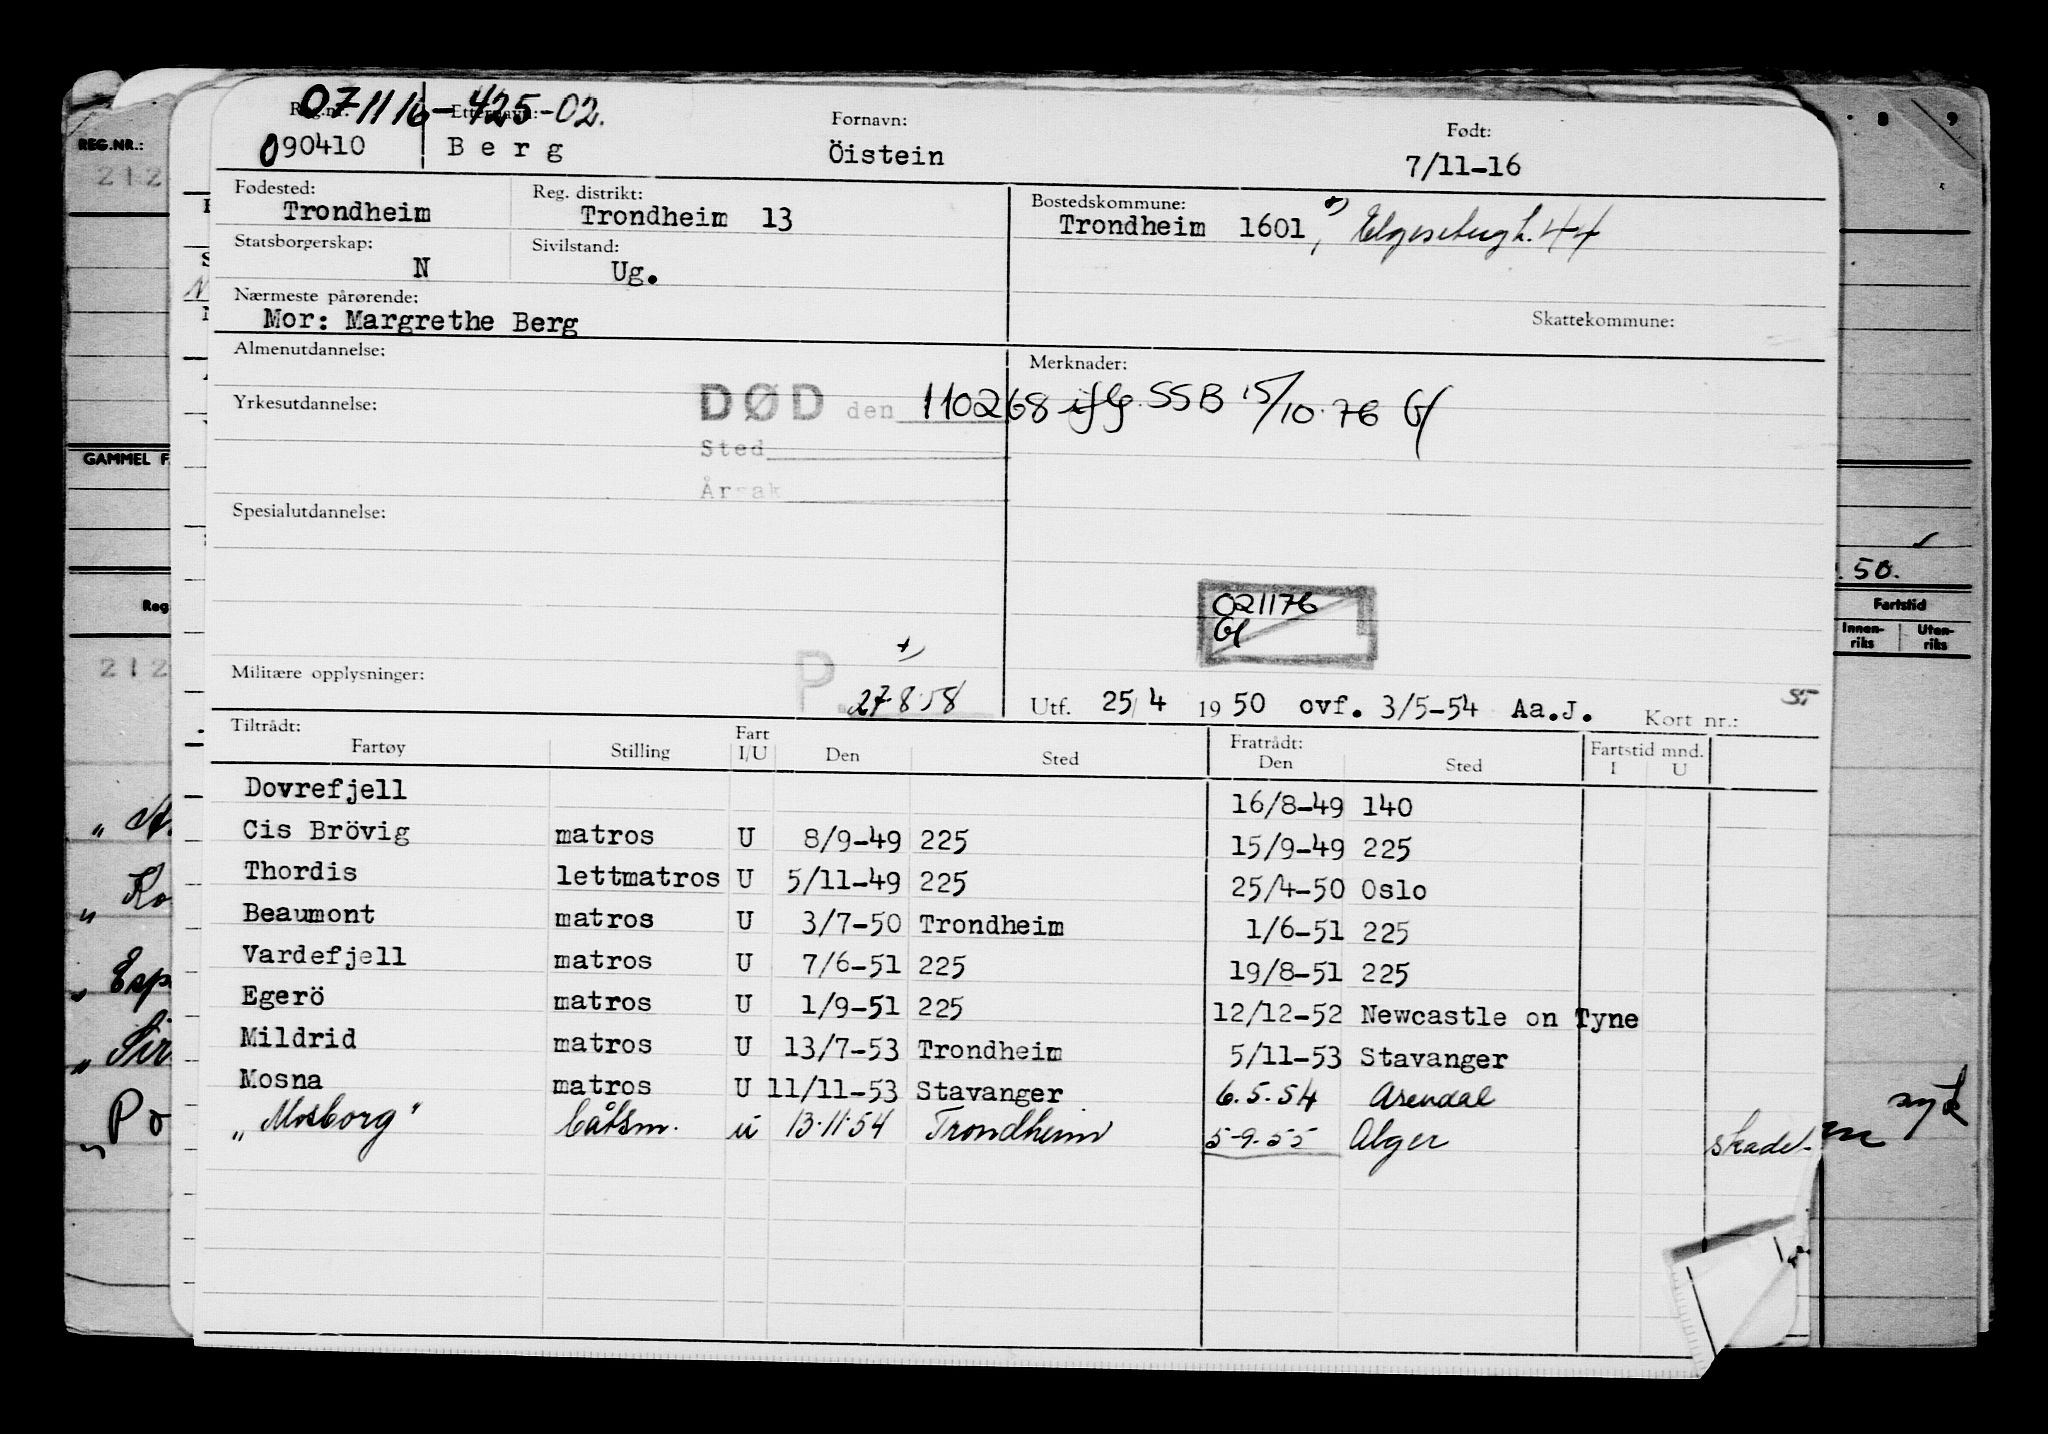 071116-425-02.
Reg.nr. Etternavn: Fornavn: Født:
090410 Berg Öistein 7/11-16
Fødested: Reg. distrikt: Bostedskommune:
Trondheim Trondheim 13 Trondheim 1601,
Statsborgerskap: Sivilstand:
N Ug.
Nærmeste pårørende: Skattekommune:
Mor: Margrethe Berg
Almenutdannelse: Merknader:
DØD den 110268 iflg. SSB 15/10.76
Yrkesutdannelse:
Sted
Årsak
Spesialutdannelse:
021176
Militære opplysninger: P. 27.8.58
Utf. 25/4 1950 ovf. 3/5-54 Aa.J. Kort nr.:
Tiltrådt: Fratrådt: Fartstid mnd.
Fartøy Stilling Fart I/U Den Sted Den Sted I U
Dovrefjell 16/8-49 140
Cis Brövig matros U 8/9-49 225 15/9-49 225
Thordis lettmatros U 5/11-49 225 25/4-50 Oslo
Beaumont matros U 3/7-50 Trondheim 1/6-51 225
Vardefjell matros U 7/6-51 225 19/8-51 225
Egerö matros U 1/9-51 225 12/12-52 Newcastle on Tyne
Mildrid matros U 13/7-53 Trondheim 5/11-53 Stavanger
Mosna matros U 11/11-53 Stavanger 6.5.54 Arendal
„Mosborg" båtsm. u 13.11.54 Trondheim 5-9.55 Alger skadet
REG.NR.:
212
GAMMEL F
Reg
212
8 9
.50.
Fartstid
Innen-riks Uten-riks
„ Ko
„ Esp
„ Sir
„ Po
syk